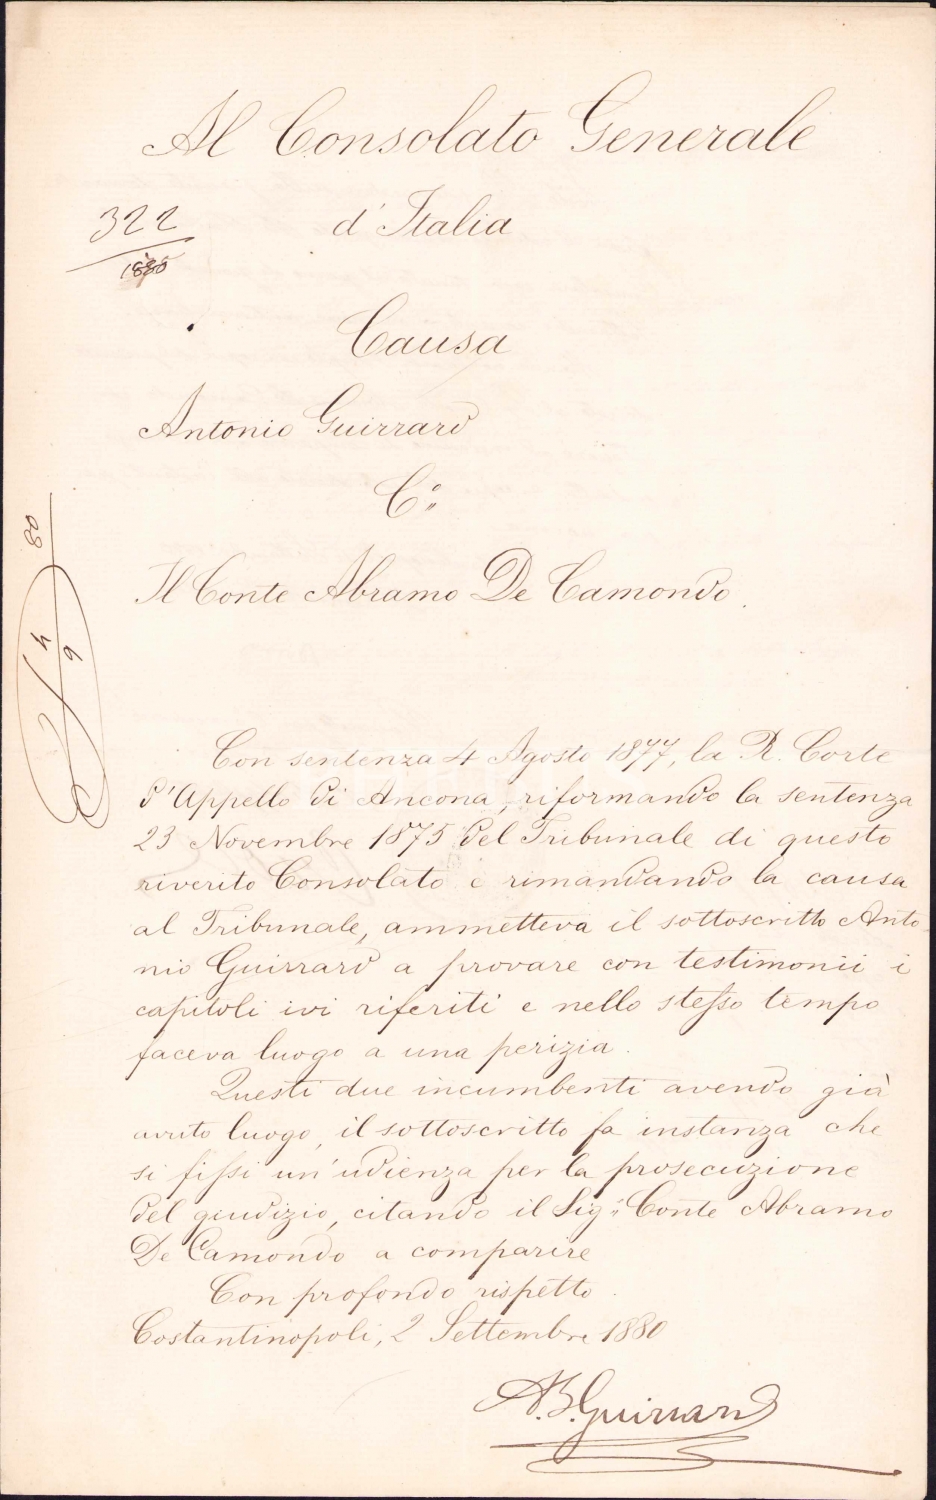 Al Consolato Generale
d'Italia
322
1880
Causa
Antonio Guirrard
Cº
Il Conte Abramo De Camondo.
80
4 6
Con sentenza 4 Agosto 1877, la R. Corte
d'Appello di Ancona, riformando la sentenza
23 Novembre 1875 del Tribunale di questo
riverito Consolato e rimandando la causa
al Tribunale, ammetteva il sottoscritto Anto-
nio Guirrard a provare con testimonii i
capitoli ivi riferiti e nello stesso tempo
faceva luogo a una perizia.
Questi due incumbenti avendo già
avuto luogo, il sottoscritto fa instanza che
si fissi un'udienza per la prosecuzione
del giudizio, citando il Sigr Conte Abramo
De Camondo a comparire
Con profondo rispetto.
Costantinopoli, 2 Settembre 1880
A.B. Guirrard